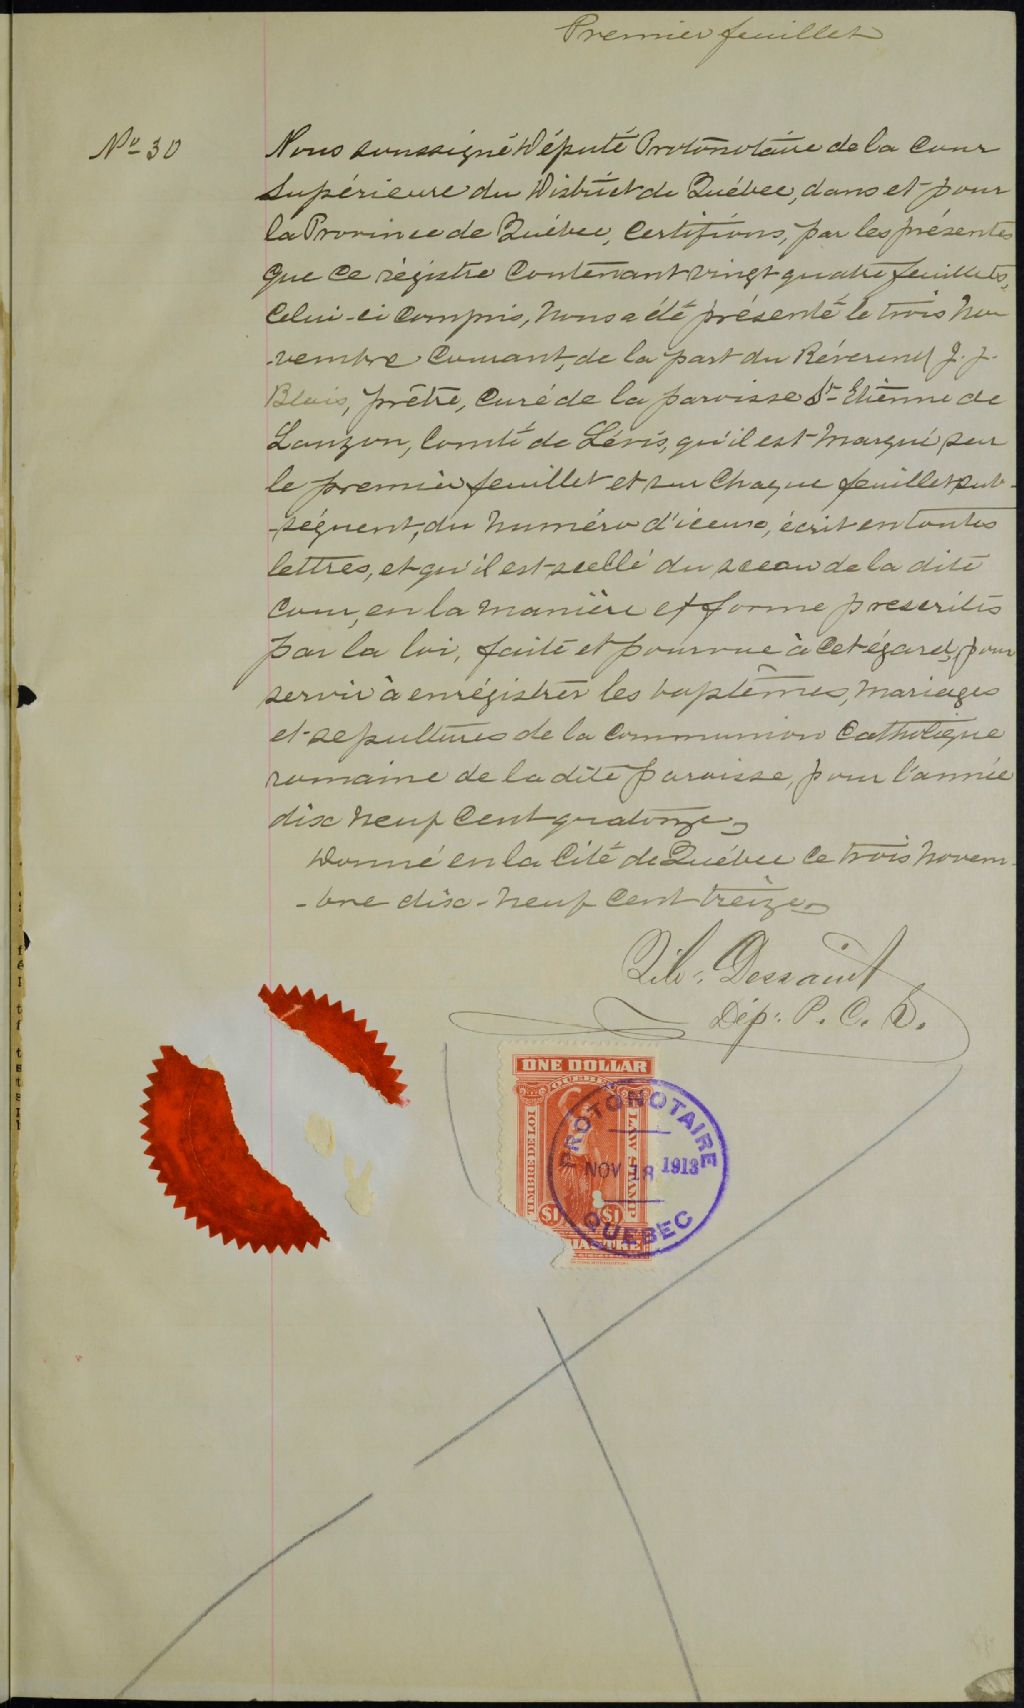 Premier feuillet
No 30
Nous soussigné Député Protonotaire de la Cour
Supérieure du District de Québec, dans et pour
la Province de Québec, Certifions, par les présentes
que ce régistre Contenant vingt quatre feuillets,
Celui-ci Compris, Nous a été présenté le trois No-
-vembre Courant, de la part du Révérend J. J.
Blais, prêtre, Curé de la paroisse St- Etienne de
Lauzon, Comté de Lévis, qu'il est Marqué sur
le premier feuillet et sur Chaque feuillet sub-
-séquent, du Numéro d'iceux, écrit en toutes
lettres, et qu'il est scellé du sceau de la dite
Cour, en la Manière et forme prescrites
par la loi, faite et pourvue à Cet égard, pour
servir à enrégistrer les baptêmes, Mariages
et sepultures de la Communion Catholique
romaine de la dite paroisse, pour l'année
dix Neuf Cent quatorze
Donné en la Cité de Québec Ce trois Novem-
-bre dix-Neuf Cent treize
Dessaint
Dép: P. C. S.
ONE DOLLAR
QUEBEC
TIMBRE DE LOI
LAW STAMP
$1 $1
PIASTRE
PROTONOTAIRE
NOV 18 1913
QUEBEC